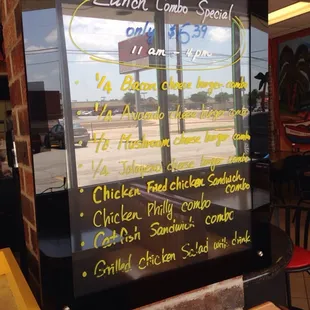 Lunch Combo Special
only $5.39
11 am - 4 pm
• 1/4 Bacon cheese burger combo
• 1/4 Avocado cheese burger combo
• 1/4 Mushroom cheese burger combo
• 1/4 Jalapeno cheese burger combo
• Chicken Fried chicken Sandwich, combo
• Chicken Philly combo
• Cat fish Sandwich combo
• Grilled chicken Salad with drink